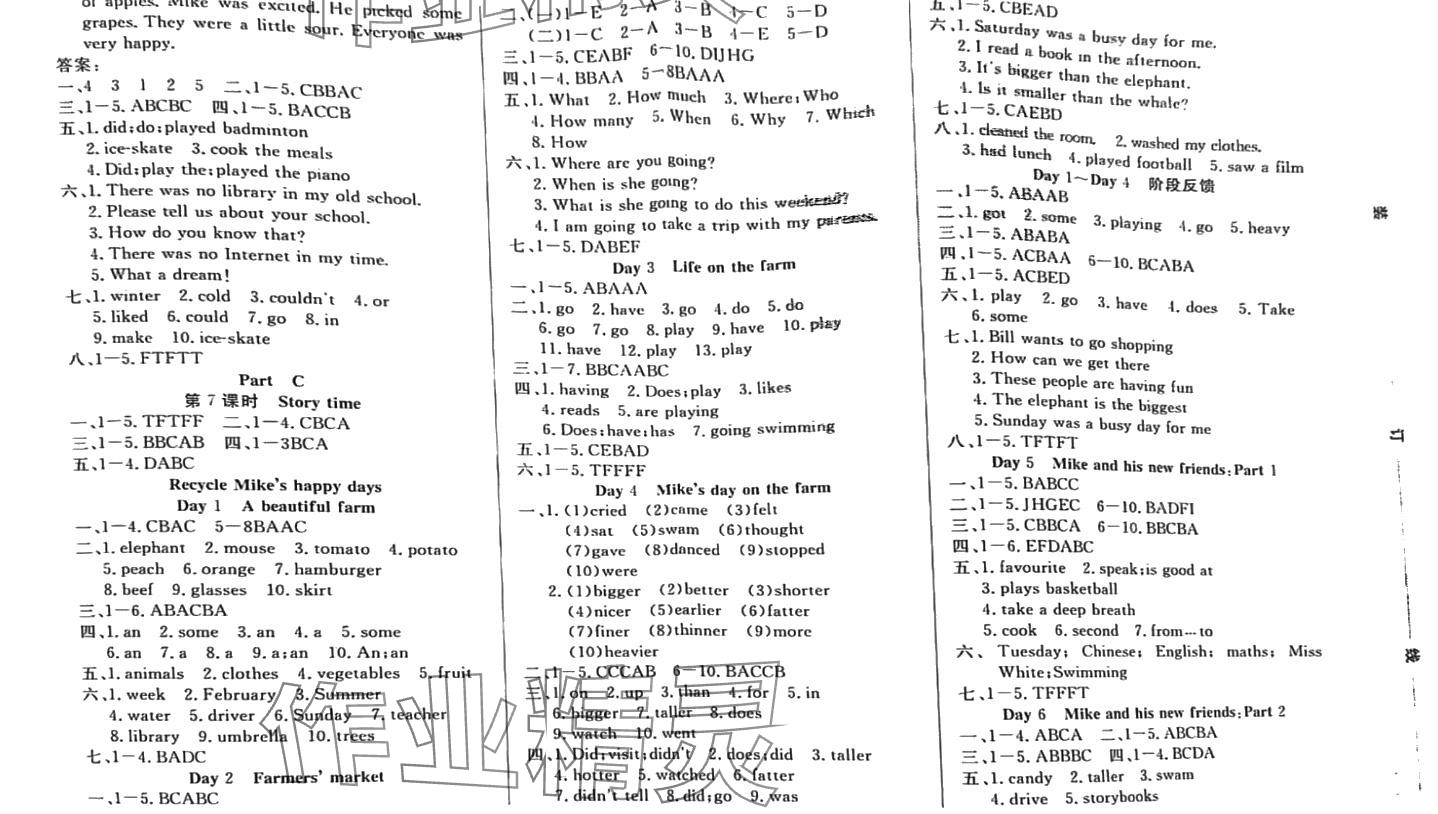 of apples. Mike was excited. He picked some
grapes. They were a little sour. Everyone was
very happy.
答案:
一、4 3 1 2 5 二、1—5. CBBAC
三、1—5. ABCBC 四、1—5. BACCB
五、1. did;do;played badminton
2. ice-skate 3. cook the meals
4. Did;play the;played the piano
六、1. There was no library in my old school.
2. Please tell us about your school.
3. How do you know that?
4. There was no Internet in my time.
5. What a dream!
七、1. winter 2. cold 3. couldn't 4. or
5. liked 6. could 7. go 8. in
9. make 10. ice-skate
八、1—5. FTFTT
Part C
第 7 课时 Story time
一、1—5. TFTFF 二、1—4. CBCA
三、1—5. BBCAB 四、1—3BCA
五、1—4. DABC
Recycle Mike's happy days
Day 1 A beautiful farm
一、1—4. CBAC 5—8BAAC
二、1. elephant 2. mouse 3. tomato 4. potato
5. peach 6. orange 7. hamburger
8. beef 9. glasses 10. skirt
三、1—6. ABACBA
四、1. an 2. some 3. an 4. a 5. some
6. an 7. a 8. a 9. a;an 10. An;an
五、1. animals 2. clothes 4. vegetables 5. fruit
六、1. week 2. February 3. Summer
4. water 5. driver 6. Sunday 7. teacher
8. library 9. umbrella 10. trees
七、1—4. BADC
Day 2 Farmers' market
一、1—5. BCABC
二、(一)1—E 2—A 3—B 4—C 5—D
(二)1—C 2—A 3—B 4—E 5—D
三、1—5. CEABF 6—10. DIJHG
四、1—4. BBAA 5—8BAAA
五、1. What 2. How much 3. Where;Who
4. How many 5. When 6. Why 7. Which
8. How
六、1. Where are you going?
2. When is she going?
3. What is she going to do this weekend?
4. I am going to take a trip with my parents.
七、1—5. DABEF
Day 3 Life on the farm
一、1—5. ABAAA
二、1. go 2. have 3. go 4. do 5. do
6. go 7. go 8. play 9. have 10. play
11. have 12. play 13. play
三、1—7. BBCAABC
四、1. having 2. Does;play 3. likes
4. reads 5. are playing
6. Does;have;has 7. going swimming
五、1—5. CEBAD
六、1—5. TFFFF
Day 4 Mike's day on the farm
一、1. (1)cried (2)came (3)felt
(4)sat (5)swam (6)thought
(7)gave (8)danced (9)stopped
(10)were
2. (1)bigger (2)better (3)shorter
(4)nicer (5)earlier (6)fatter
(7)finer (8)thinner (9)more
(10)heavier
二、1—5. CCCAB 6—10. BACCB
三、1. on 2. up 3. than 4. for 5. in
6. bigger 7. taller 8. does
9. watch 10. went
四、1. Did;visit;didn't 2. does;did 3. taller
4. hotter 5. watched 6. fatter
7. didn't tell 8. did;go 9. was
五、1—5. CBEAD
六、1. Saturday was a busy day for me.
2. I read a book in the afternoon.
3. It's bigger than the elephant.
4. Is it smaller than the whale?
七、1—5. CAEBD
八、1. cleaned the room. 2. washed my clothes.
3. had lunch 4. played football 5. saw a film
Day 1~Day 4 阶段反馈
一、1—5. ABAAB
二、1. got 2. some 3. playing 4. go 5. heavy
三、1—5. ABABA
四、1—5. ACBAA 6—10. BCABA
五、1—5. ACBED
六、1. play 2. go 3. have 4. does 5. Take
6. some
七、1. Bill wants to go shopping
2. How can we get there
3. These people are having fun
4. The elephant is the biggest
5. Sunday was a busy day for me
八、1—5. TFTFT
Day 5 Mike and his new friends:Part 1
一、1—5. BABCC
二、1—5. JHGEC 6—10. BADFI
三、1—5. CBBCA 6—10. BBCBA
四、1—6. EFDABC
五、1. favourite 2. speak;is good at
3. plays basketball
4. take a deep breath
5. cook 6. second 7. from…to
六、 Tuesday; Chinese; English; maths; Miss
White;Swimming
七、1—5. TFFFT
Day 6 Mike and his new friends:Part 2
一、1—4. ABCA 二、1—5. ABCBA
三、1—5. ABBBC 四、1—4. BCDA
五、1. candy 2. taller 3. swam
4. drive 5. storybooks
装
订
线
作业精灵
作业精灵